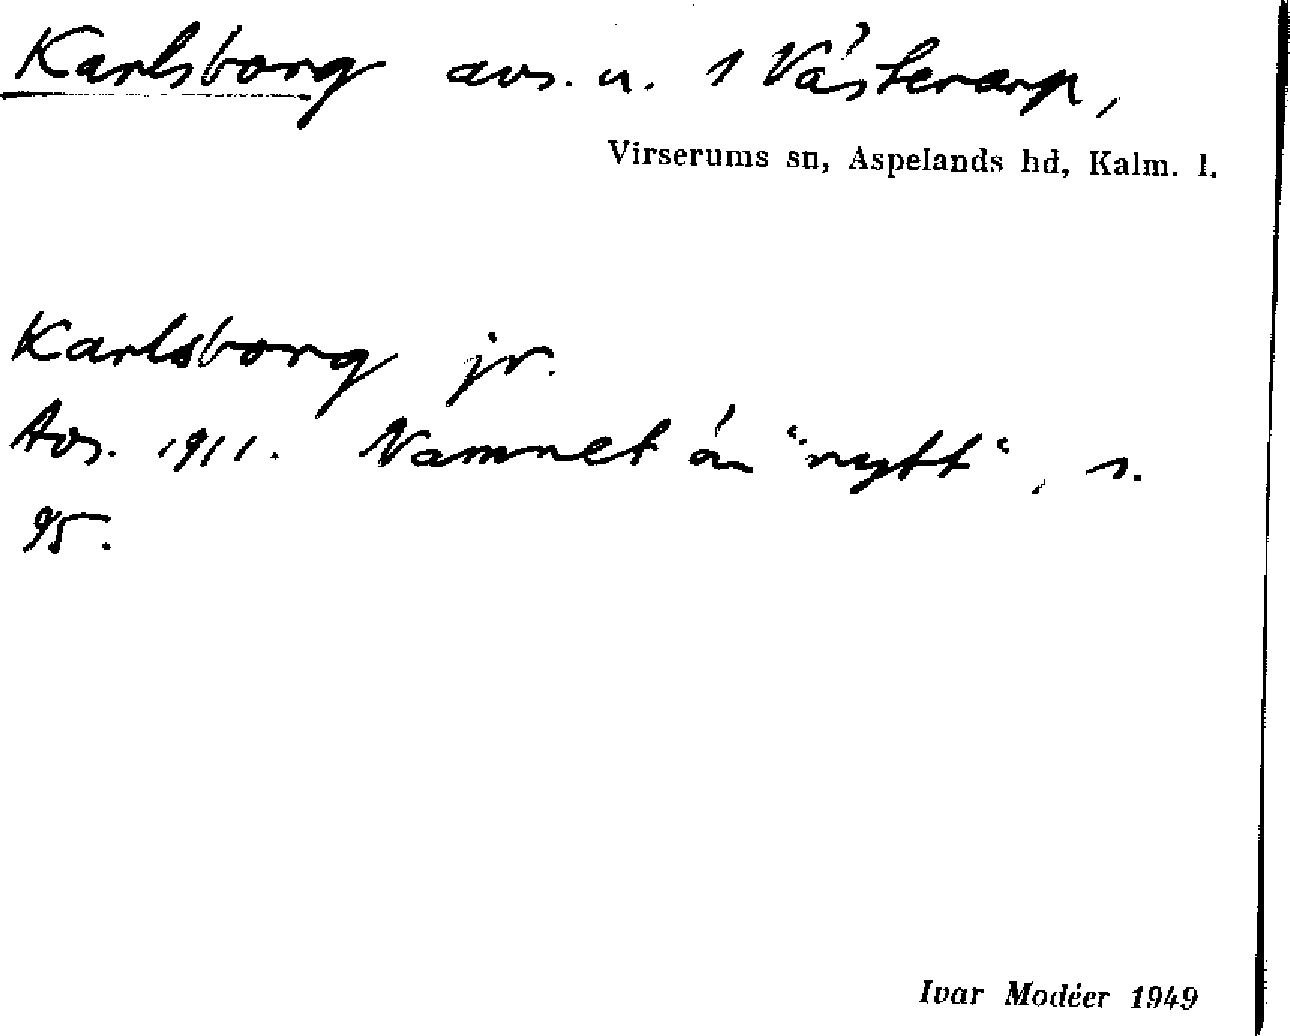 Karlsborg avs. u. 1 Västerarp,
Virserums sn, Aspelands hd, Kalm. l.
Karlsborg jr.
Avs. 1911. Namnet än "nytt", s.
95.
Ivar Modéer 1949